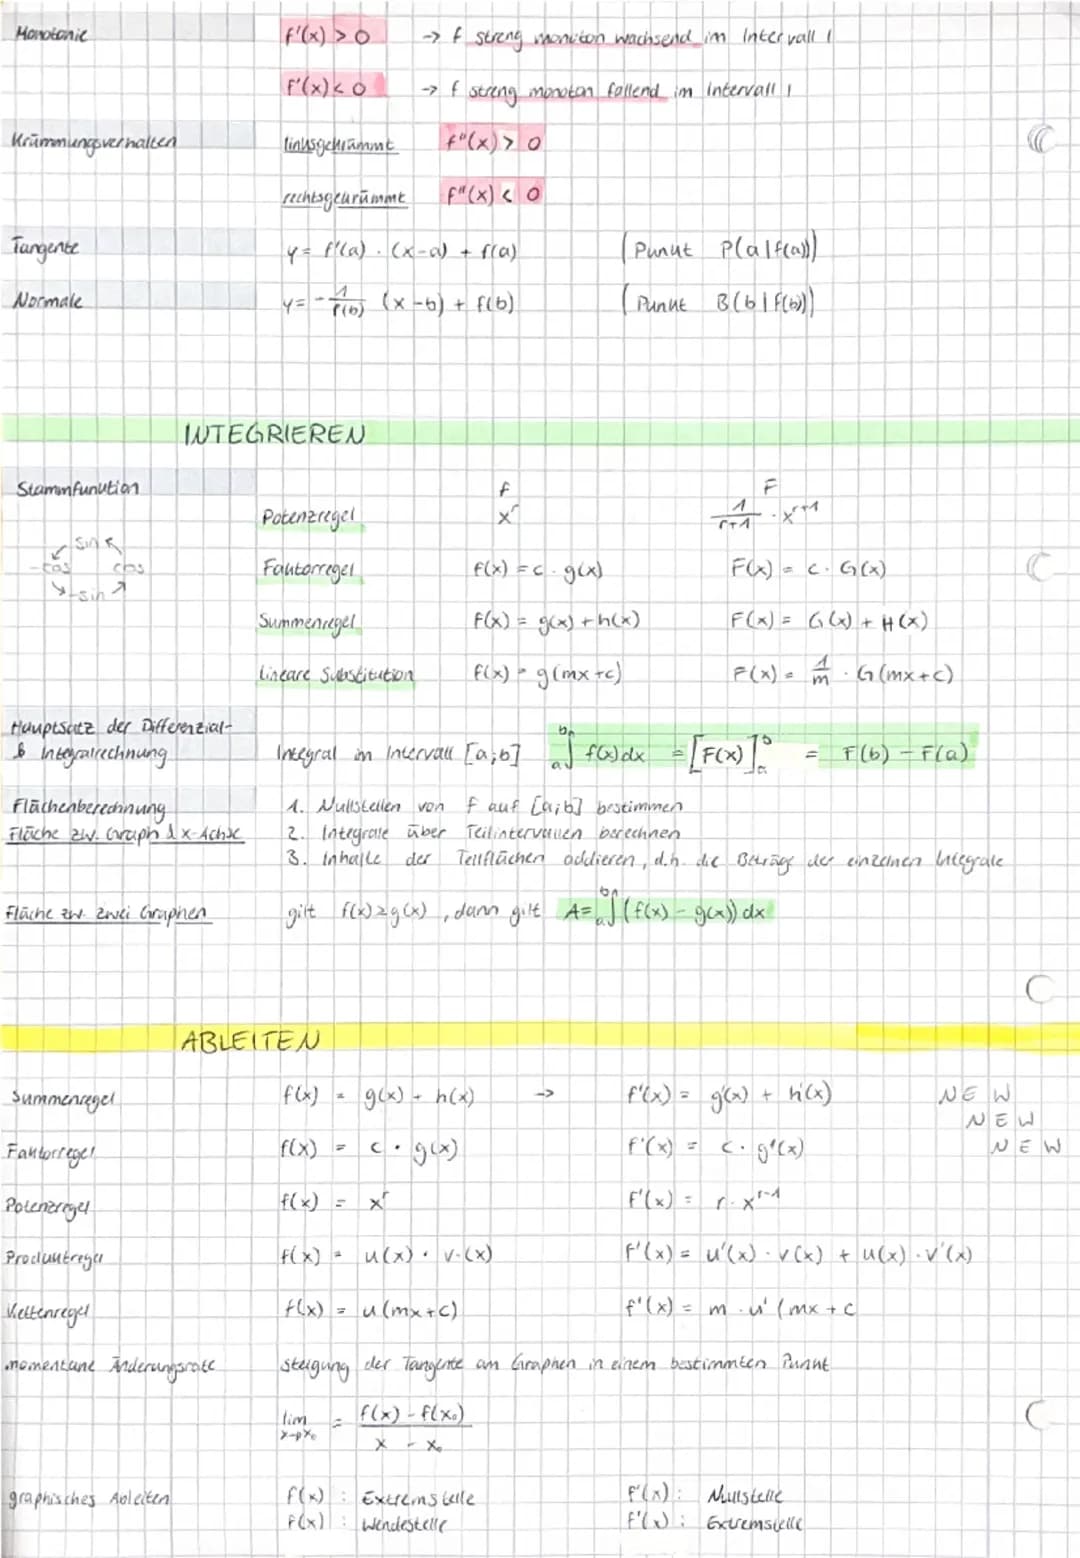 Monotonie f'(x) > 0 → f streng monoton wachsend im Intervall I
f'(x) < 0 → f streng monoton fallend im Intervall I
Krümmungsverhalten linksgekrümmt f"(x) > 0
rechtsgekrümmt f"(x) < 0
Tangente y = f'(a) · (x-a) + f(a) (Punkt P(a|f(a)))
Normale y = - 1/f'(b) (x-b) + f(b) (Punkt B(b|f(b)))
INTEGRIEREN
Stammfunktion f F
Potenzregel x^r 1/(r+1) · x^(r+1)
sin
-cos cos
-sin
Faktorregel f(x) = c · g(x) F(x) = c · G(x)
Summenregel f(x) = g(x) + h(x) F(x) = G(x) + H(x)
Lineare Substitution f(x) = g(mx+c) F(x) = 1/m · G(mx+c)
Hauptsatz der Differenzial-
& Integralrechnung Integral im Intervall [a;b] ∫_a^b f(x)dx = [F(x)]_a^b = F(b) - F(a)
Flächenberechnung 1. Nullstellen von f auf [a;b] bestimmen
Fläche zw. Graph & x-Achse 2. Integrale über Teilintervallen berechnen
3. Inhalte der Teilflächen addieren, d.h. die Beträge der einzelnen Integrale
Fläche zw. zwei Graphen gilt f(x) ≥ g(x), dann gilt A = ∫_a^b (f(x) - g(x)) dx
ABLEITEN
Summenregel f(x) = g(x) + h(x) → f'(x) = g'(x) + h'(x) NEW
NEW
Faktorregel f(x) = c · g(x) f'(x) = c · g'(x) NEW
Potenzregel f(x) = x^r f'(x) = r · x^(r-1)
Produktregel f(x) = u(x) · v·(x) f'(x) = u'(x) · v(x) + u(x) · v'(x)
Kettenregel f(x) = u(mx+c) f'(x) = m · u'(mx+c
momentane Änderungsrate Steigung der Tangente am Graphen in einem bestimmten Punkt
lim x→x₀ = (f(x) - f(x₀))/(x - x₀)
graphisches Ableiten f(x) : Extremstelle f'(x) : Nullstelle
f(x) : Wendestelle f'(x) : Extremstelle